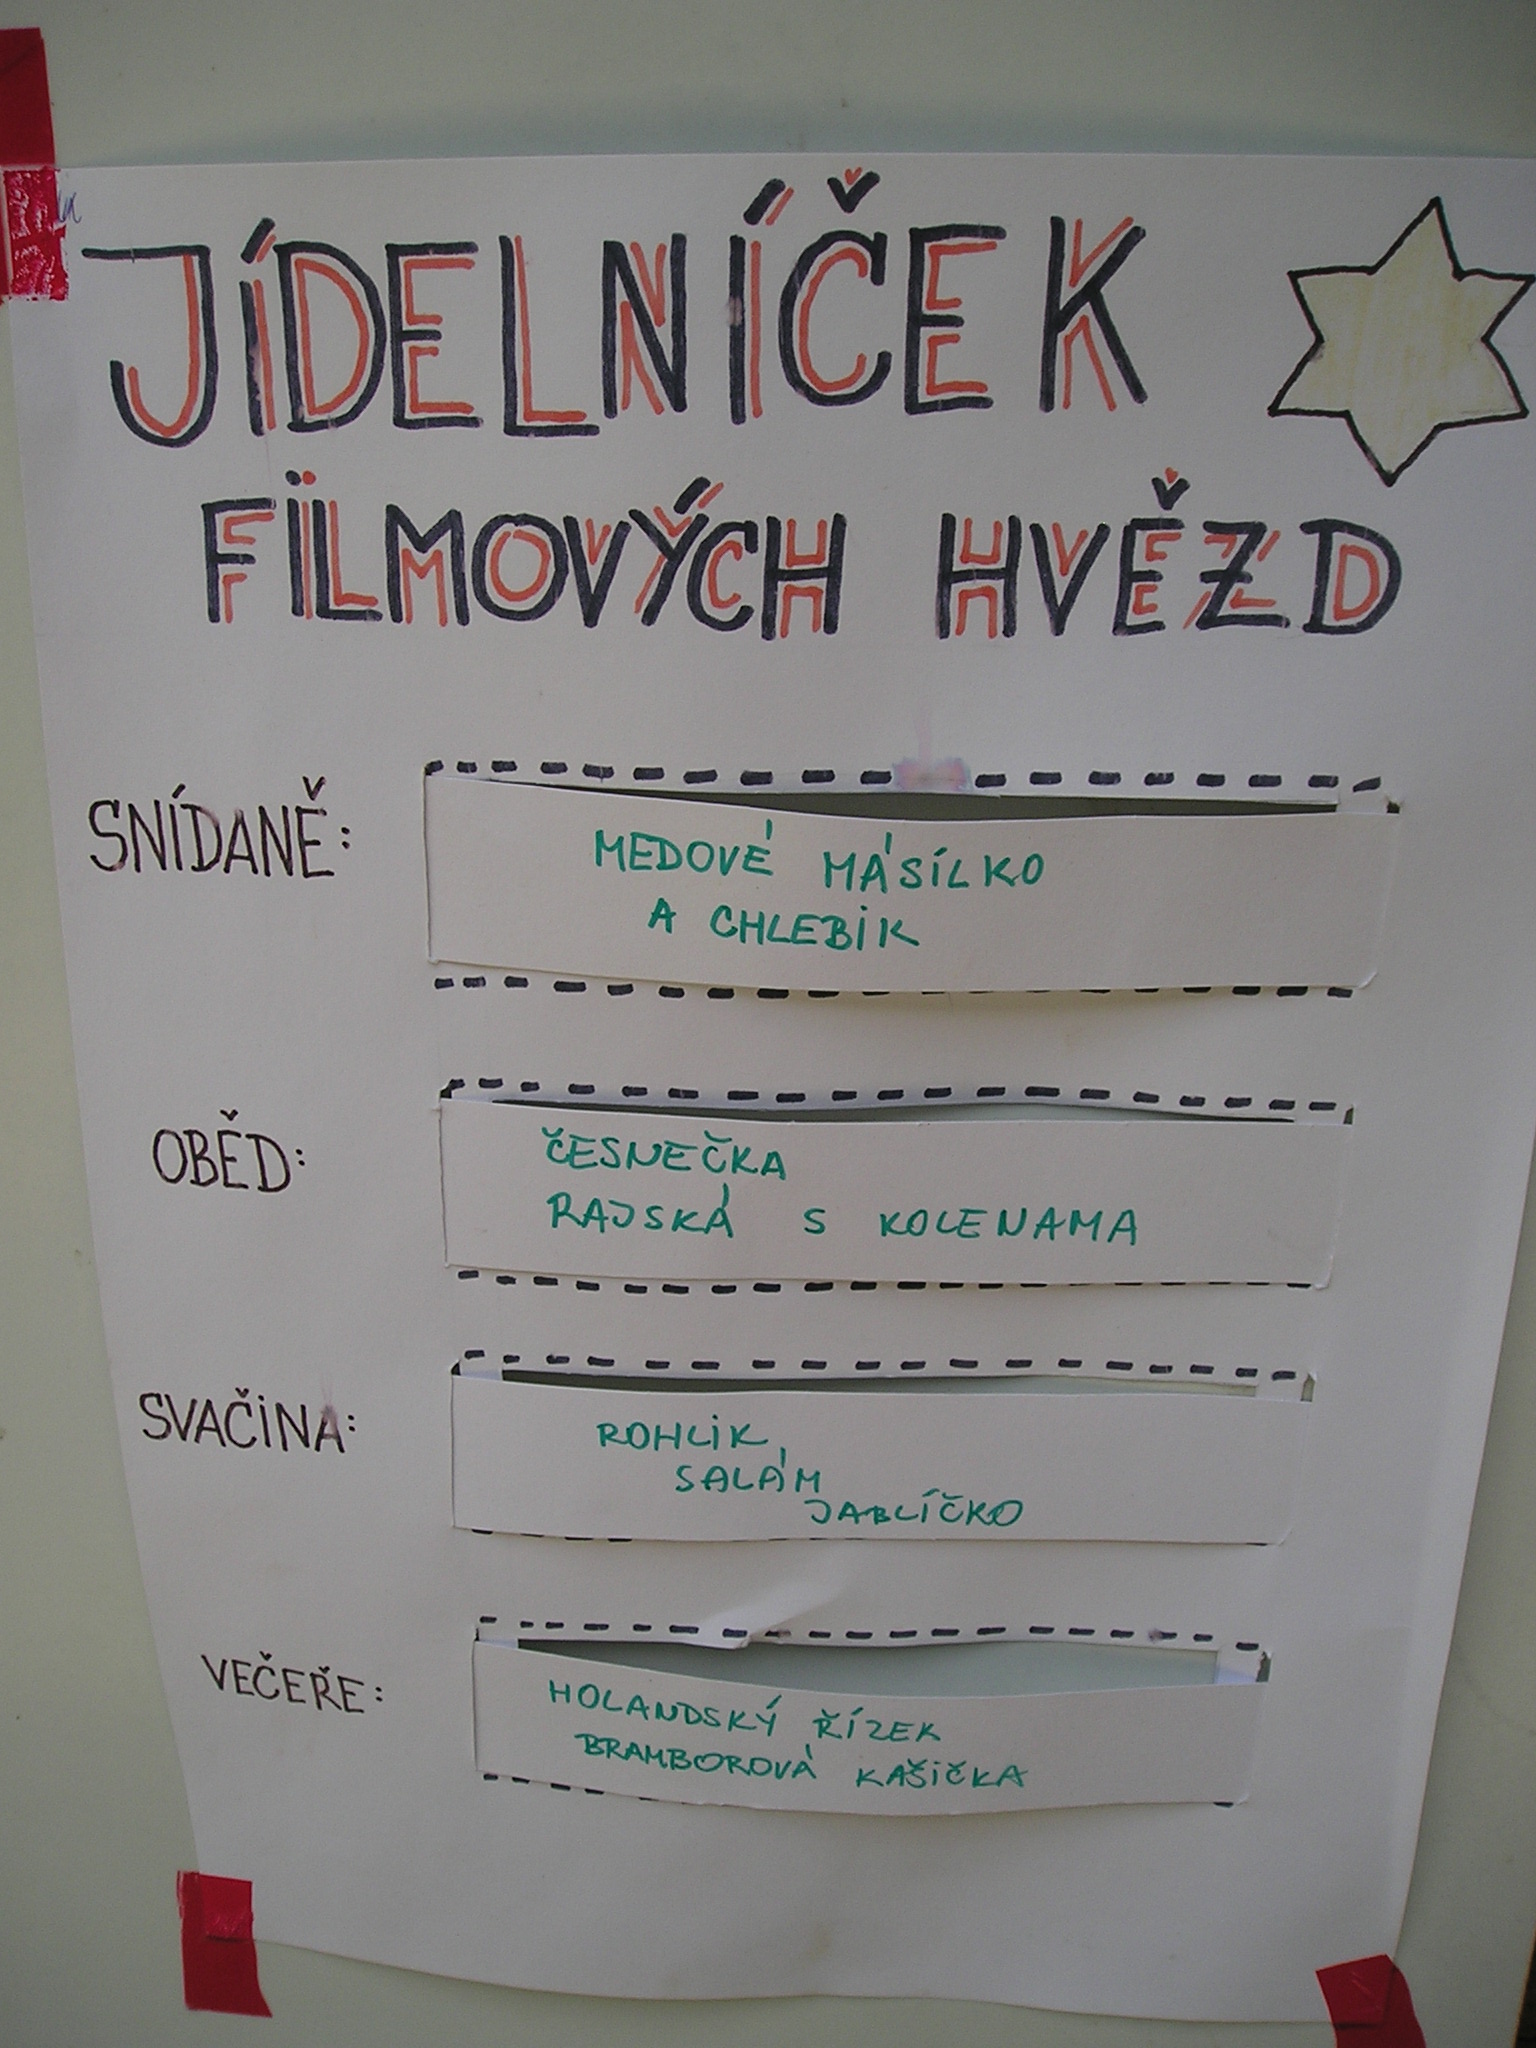 JÍDELNÍČEK
FILMOVÝCH HVĚZD
SNÍDANĚ:
MEDOVÉ MÁSÍLKO
A CHLEBÍK
OBĚD:
ČESNEČKA
RAJSKÁ S KOLENAMA
SVAČINA:
ROHLÍK,
SALÁM
JABLÍČKO
VEČEŘE:
HOLANDSKÝ ŘÍZEK
BRAMBOROVÁ KAŠIČKA